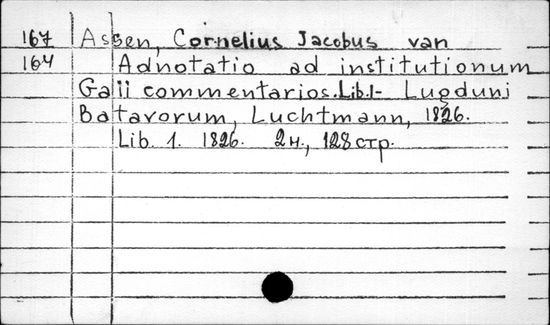 167 Assen, Cornelius Jacobus van
164 Adnotatio ad institutionum
Gaii commentarios. Lib.1- Lugduni
Batavorum, Luchtmann, 1826.
Lib. 1. 1826. 2н., 128стр.